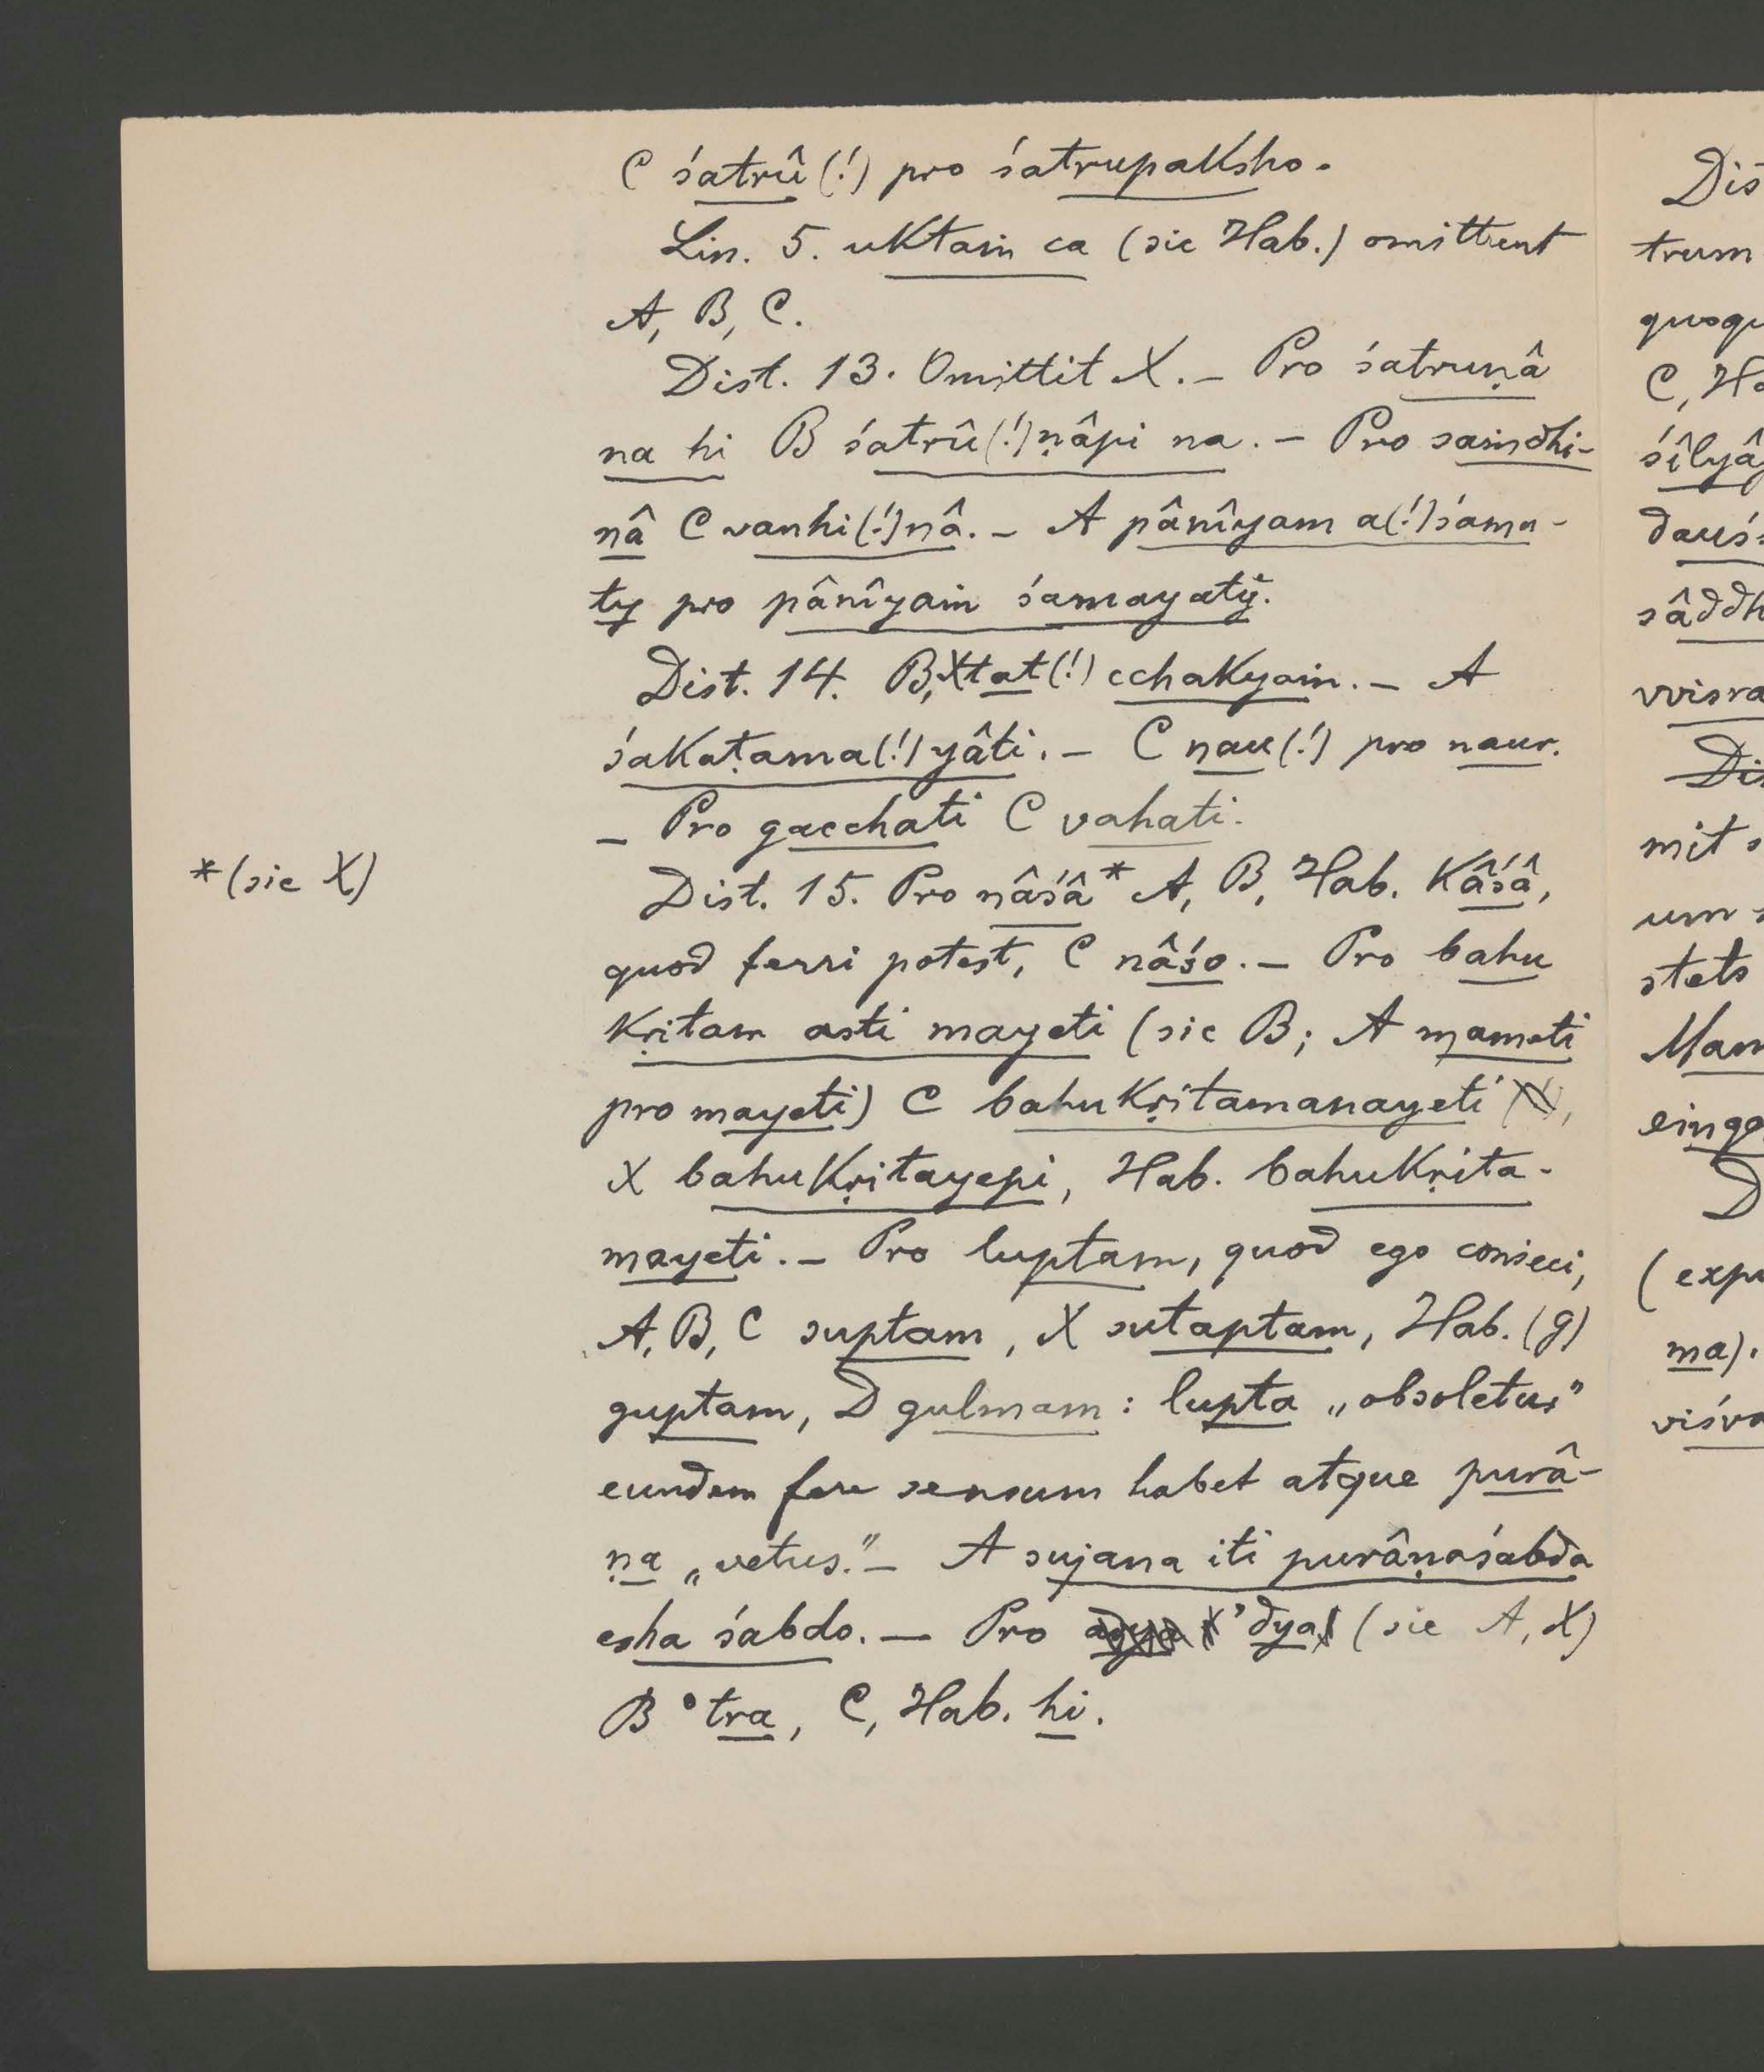 C śatrû(!) pro śatrupaksho.
Lin. 5. uktaṁ ca (sic Hab.) omittunt
A, B, C.
Dist. 13. Omittit X. – Pro śatruṇâ
na hi B śatrû(!)ṇâpi na. – Pro saṁdhi-
nâ C vanhi(!)nâ. – A pânîyam a(!)śama-
ty pro pânîyaṁ śamayaty.
Dist. 14. B, X tat(!) cchakyaṁ. – A
śakaṭama(!)yâti. – C nau(!) pro naur.
– Pro gacchati C vahati.
*(sic X)
Dist. 15. Pro nâśâ* A, B, Hab. kâśâ,
quod ferri potest, C nâśo. – Pro bahu
kṛitam asti mayeti (sic B; A mameti
pro mayeti) C bahukṛitamanayeti
X bahukṛitayepi, Hab. bahukṛita-
mayeti. – Pro luptam, quod ego conieci,
A, B, C suptam, X sutaptam, Hab. (g)
guptam, D gulmam: lupta „obsoletus”
eundem fere sensum habet atque purâ-
ṇa „vetus.” – A sujana iti purâṇaśabda
esha śabdo. – Pro ’dya (sic A, X)
B °tra, C, Hab. hi.
Dis
trum
quoqu
C, Ha
śîlyâ
dauś
sâddh
vvisra
Dis
mit s
um
stets
Man
einge
D
(expu
ma).
viśva